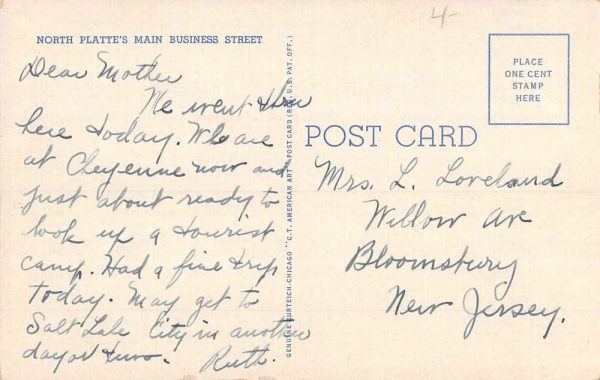 4-
NORTH PLATTE'S MAIN BUSINESS STREET
Dear Mother
We went thru
here today. We are
at Cheyenne now and
just about ready to
look up a tourist
camp. Had a fine trip
today. May get to
Salt Lake City in another
day or two. Ruth.
GENUINE CURTEICH-CHICAGO "C.T. AMERICAN ART" POST CARD (REG. U.S. PAT. OFF.)
POST CARD
PLACE
ONE CENT
STAMP
HERE
Mrs. L. Loveland
Willow Ave
Bloomsbury
New Jersey.